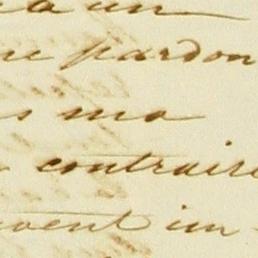 a un
pardon
s ma
contraire
vent im